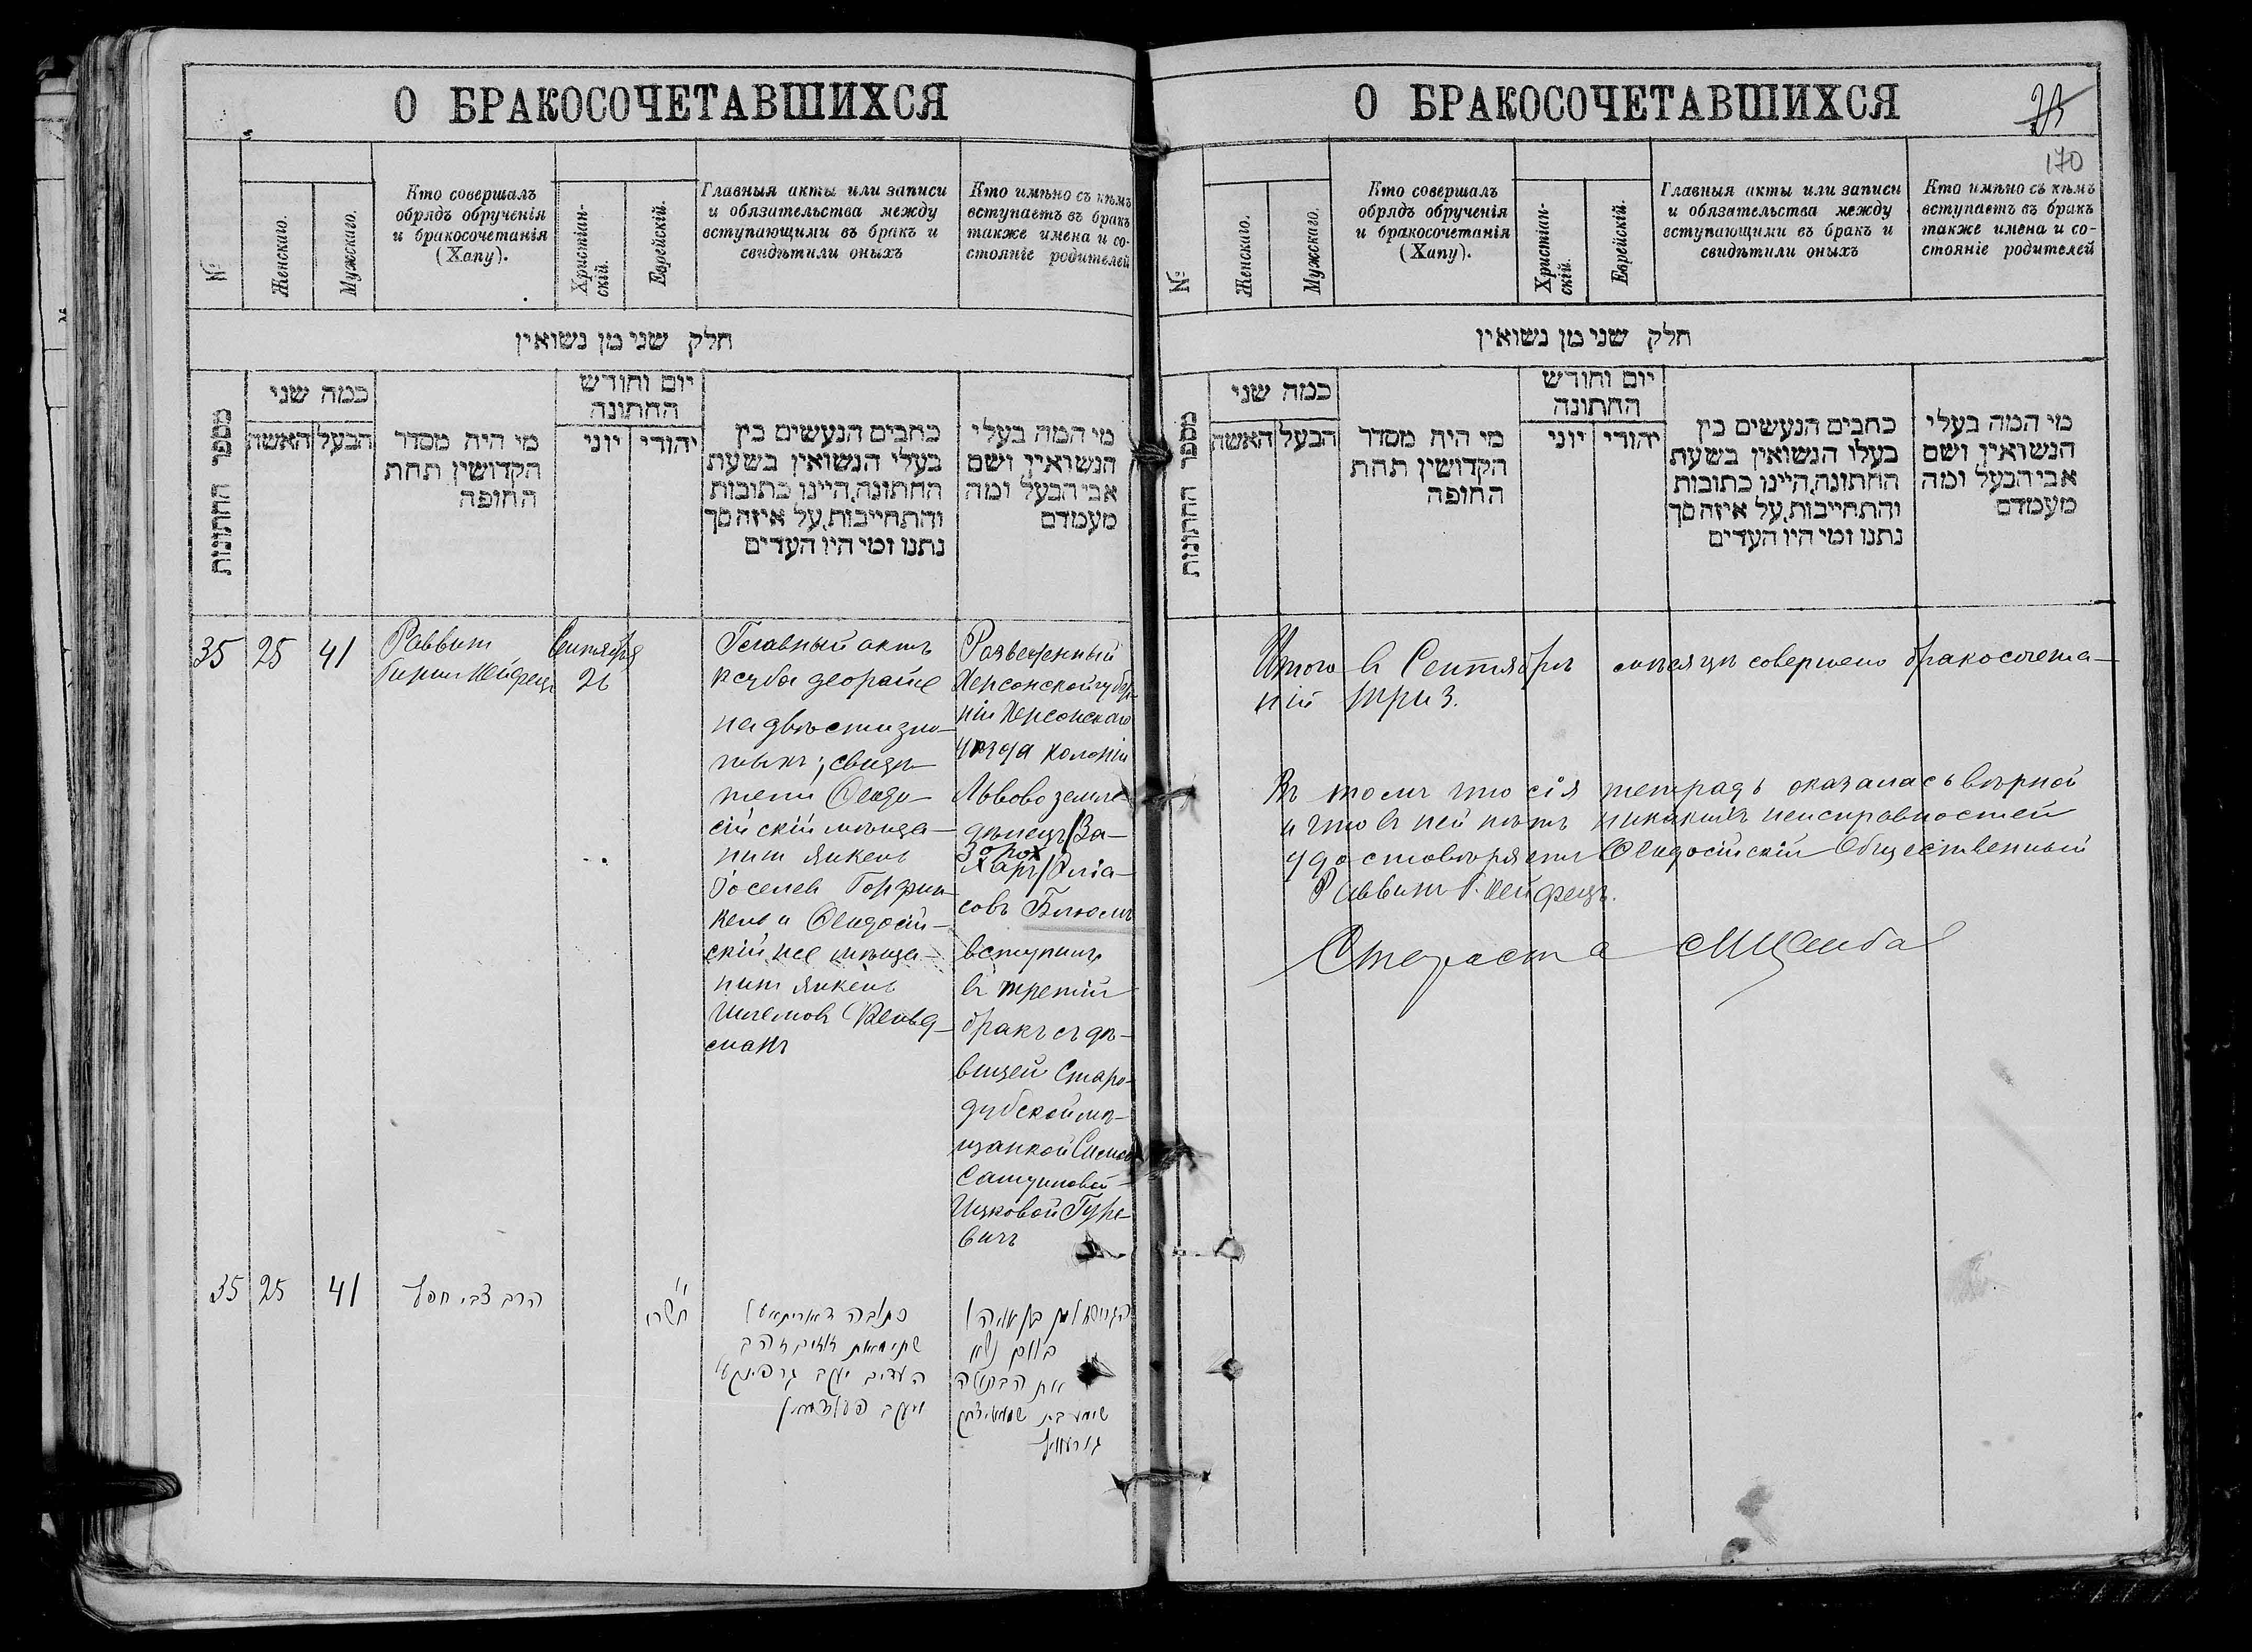 О БРАКОСОЧЕТАВШИХСЯ
№
Женскаго.
Мужскаго.
Кто совершалъ
обрядъ обрученія
и бракосочетанія
(Хапу).
Христіан-
скій.
Еврейскій.
Главныя акты или записи
и обязательства между
вступающими въ бракъ и
свидѣтили оныхъ
Кто имѣно съ кѣмъ
вступаетъ въ бракъ
также имена и со-
стояніе родителей
חלק שני מן נשואין
מספר החתונות
כמה שני
האשה
הבעל
מי היה מסדר
הקדושין תחת
החופה
יום וחודש
החתונה
יוני
יהודי
כתבים הנעשים בין
בעלי הנשואין בשעת
החתונה, היינו כתובות
והתחייבות, על איזה סך
נתנו ומי היו העדים
מי המה בעלי
הנשואין ושם
אבי הבעל ומה
מעמדם
35
25
41
Раввин
Гирш Хейфецъ
Сентября
26
Главный актъ
Ксуба деорайсе
на двѣсти зло-
тыхъ; свидѣ-
тели Ѳеодо-
сійскій мѣща-
нин Янкель
Іоселев Горфин-
кель и Ѳеодосій-
скій же мѣща-
нин Янкель
Фельд-
манъ
Разведенный
Херсонской губер-
ніи Херсонскаго
уѣзда колоніи
Львово земле-
дѣлецъ /За-
Зорох
харъ/ Эліа-
совъ Блюмъ
вступилъ
въ третій
бракъ съ дѣ-
вицей Старо-
дубской мѣ-
щанкой
Ицковой Гуре-
вичъ
35
25
41
הרב צבי חפץ
י"י
תשרי
כתובה דאורייתא על
שתי מאות זוזים זהב
העדים יעקב גרפינקל
ויעקב פעלדמאן
בלום נשא
את הבתולה
גורעוויץ
О БРАКОСОЧЕТАВШИХСЯ
170
№
Женскаго.
Мужскаго.
Кто совершалъ
обрядъ обрученія
и бракосочетанія
(Хапу).
Христіан-
скій.
Еврейскій.
Главныя акты или записи
и обязательства между
вступающими въ бракъ и
свидѣтили оныхъ
Кто имѣно съ кѣмъ
вступаетъ въ бракъ
также имена и со-
стояніе родителей
חלק שני מן נשואין
מספר החתונות
כמה שני
האשה
הבעל
מי היה מסדר
הקדושין תחת
החופה
יום וחודש
החתונה
יוני
יהודי
כתבים הנעשים בין
בעלי הנשואין בשעת
החתונה, היינו כתובות
והתחייבות, על איזה סך
נתנו ומי היו העדים
מי המה בעלי
הנשואין ושם
אבי הבעל ומה
מעמדם
Итого въ Сентябрѣ мѣсяцѣ совершено бракосочета-
ній три 3.
Въ томъ что сія тетрадь оказалась вѣрной
и что въ ней нѣтъ никакихъ неисправностей
удостовѣряетъ Ѳеодосійскій Общественный
Раввинъ Г. Хейфецъ.
Староста